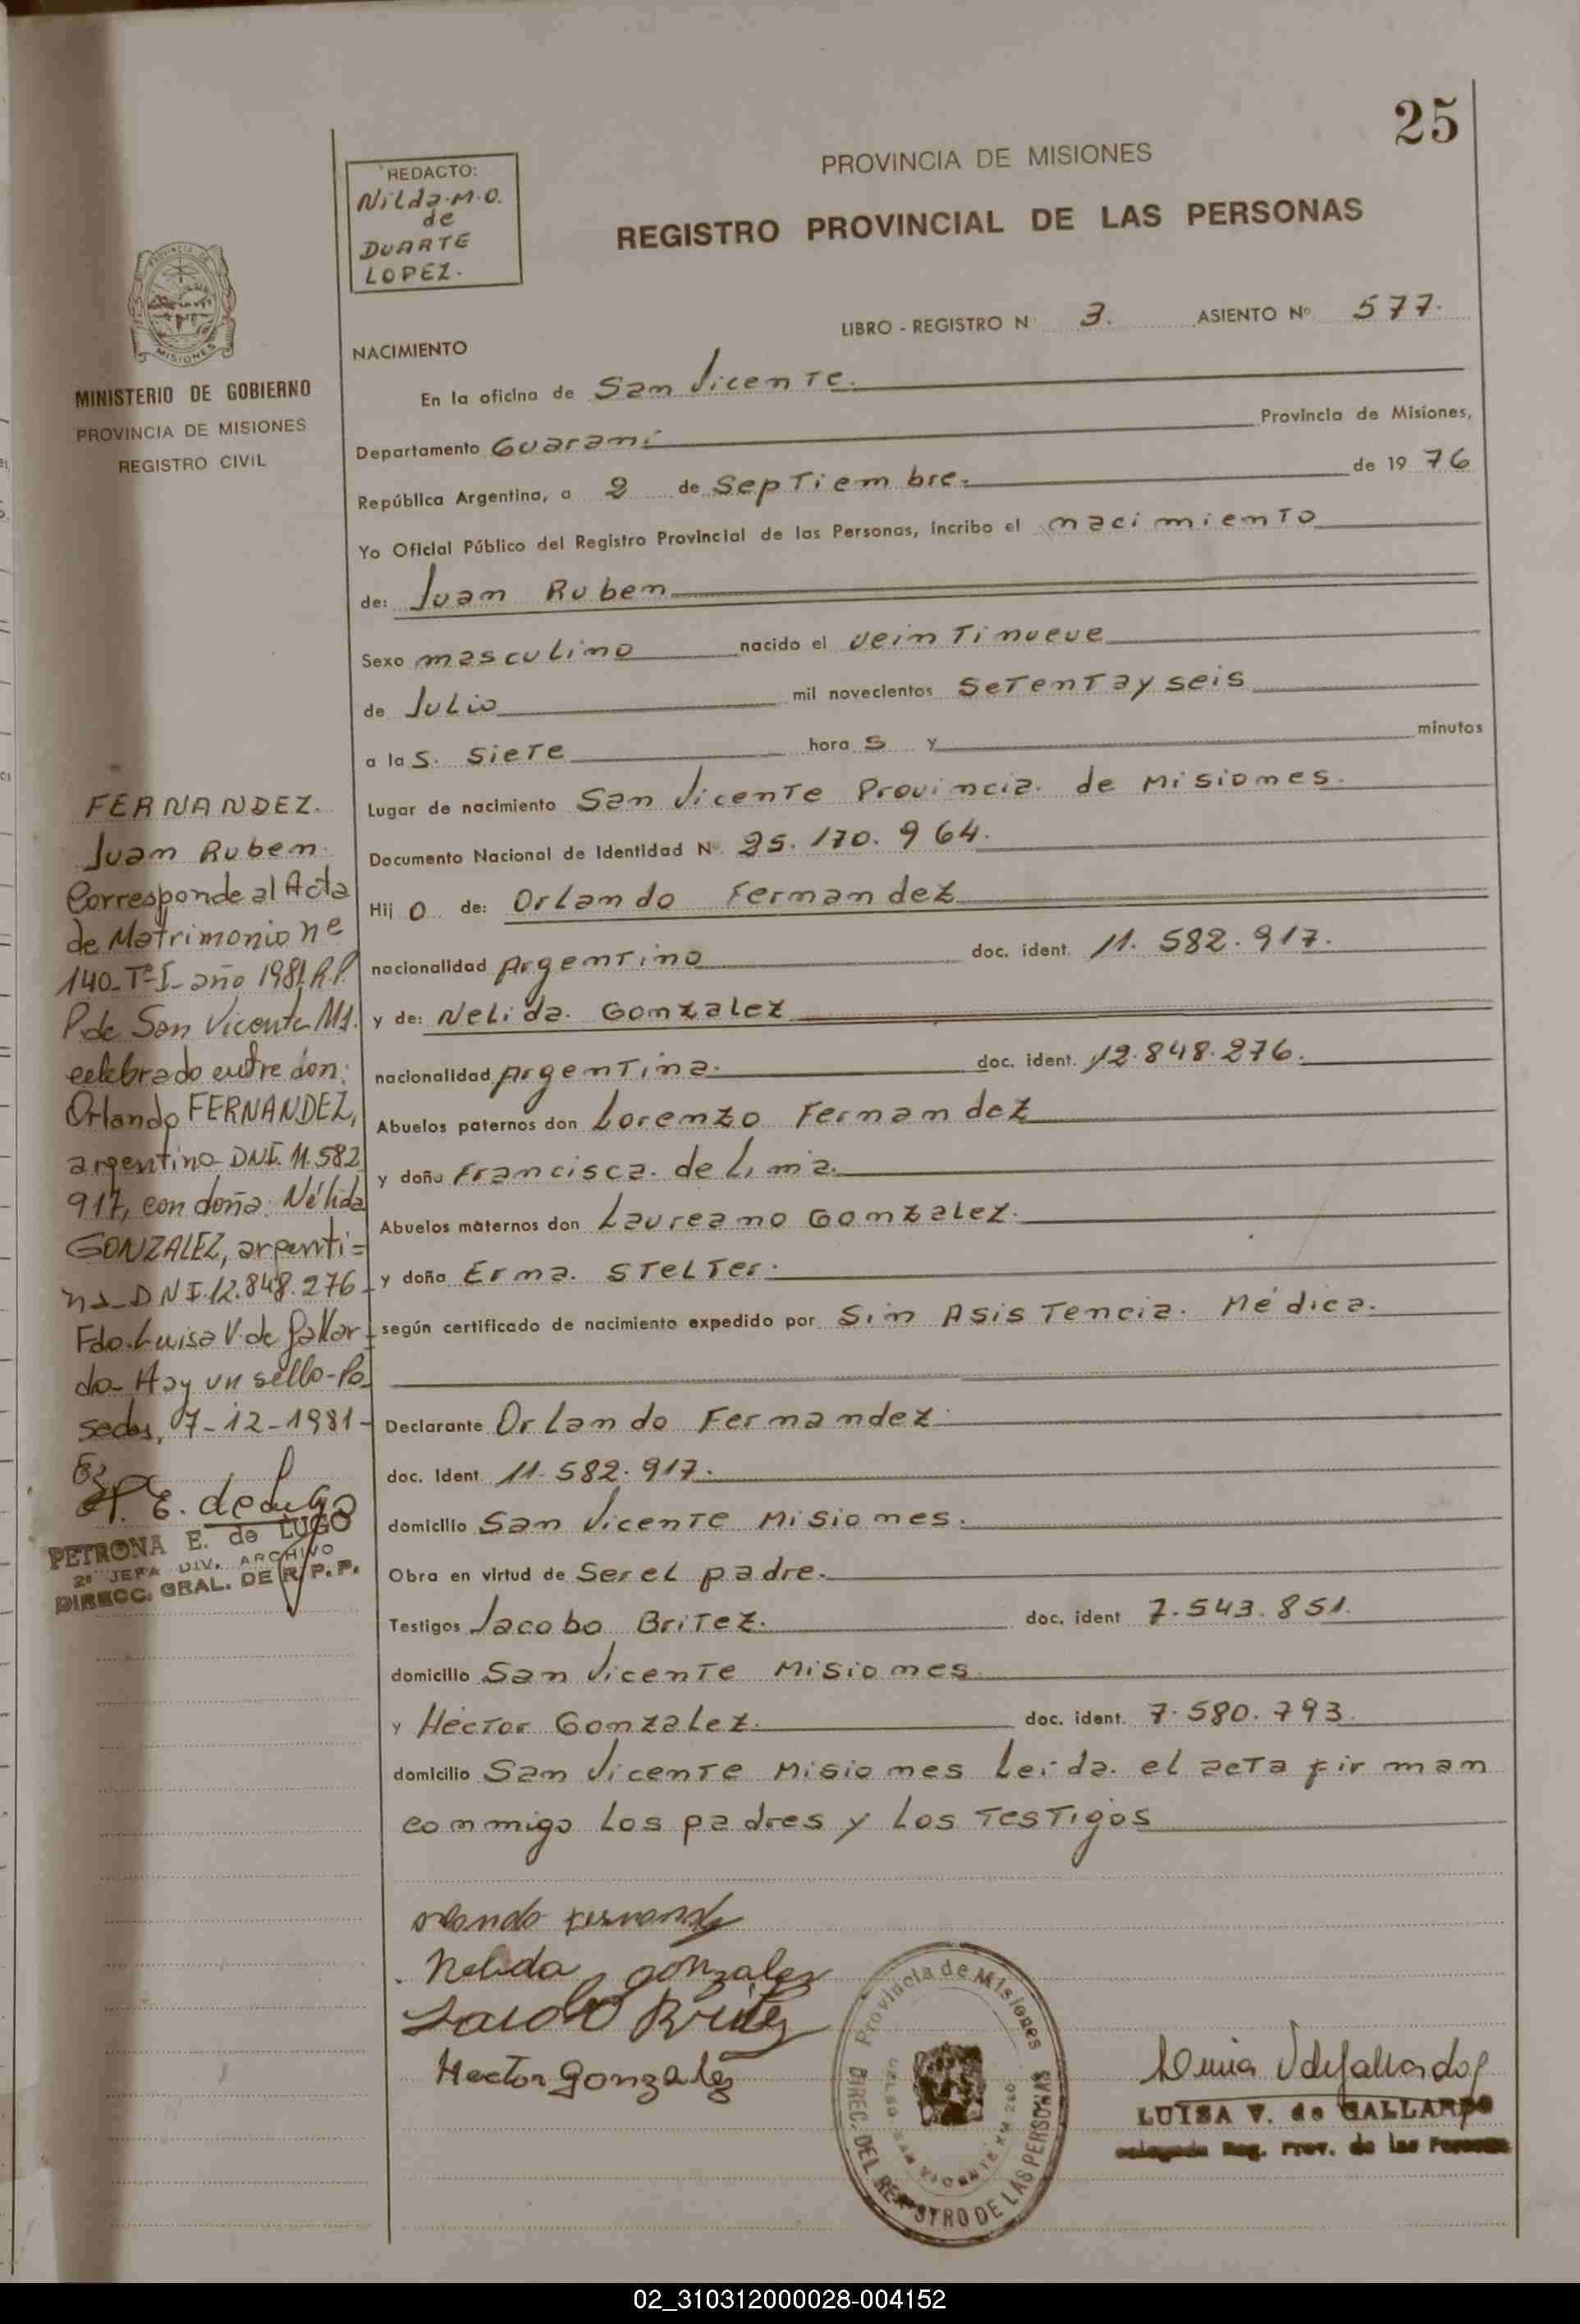 25
REDACTO:
Nilda.M.O.
de
DUARTE
LOPEZ.
PROVINCIA DE MISIONES
REGISTRO PROVINCIAL DE LAS PERSONAS
LIBRO - REGISTRO N 3. ASIENTO Nº 577.
NACIMIENTO
En la oficina de San Vicente.
Departamento Guarani Provincia de Misiones,
República Argentina, a 2 de Septiembre. de 19 76
Yo Oficial Público del Registro Provincial de las Personas, incribo el nacimiento
de: Juan Ruben
Sexo masculino nacido el veintinueve
de Julio mil novecientos setentayseis
a la s. siete hora s y minutos
Lugar de nacimiento San Vicente Provincia. de Misiones.
Documento Nacional de Identidad Nº 25.170.964.
Hij o de: Orlando Fernandez
nacionalidad Argentino doc. ident. 11.582.917.
y de: Nelida. Gonzalez
nacionalidad Argentina. doc. ident. 12.848.276.
Abuelos paternos don Lorenzo Fernandez
y doña Francisca. de Lima.
Abuelos maternos don Laureano Gonzalez.
y doña Erma. Stelter.
según certificado de nacimiento expedido por Sin Asistencia. Médica.
Declarante Orlando Fernandez
doc. Ident 11.582.917.
domicilio San Vicente Misiones.
Obra en virtud de Ser el padre.
Testigos Jacobo Britez. doc. ident 7.543.851.
domicilio San Vicente Misiones
y Héctor Gonzalez. doc. ident. 7.580.793.
domicilio San Vicente Misiones Leida. el acta firman
conmigo los padres y los testigos
MISIONES
MINISTERIO DE GOBIERNO
PROVINCIA DE MISIONES
REGISTRO CIVIL
FERNANDEZ.
Juan Ruben.
Corresponde al Acta
de Matrimonio nº
140-Tº I- año 1981 R.P.
P. de San Vicente Ms.
celebrado entre don:
Orlando FERNANDEZ,
argentino DNI. 11.582
917, con doña: Nélida
GONZALEZ, argenti=
na- DNI. 12.848.276-
Fdo. Luisa V. de Gallar-
do- Hay un sello- Po
sadas, 07-12-1981-
P. E. de Lugo
PETRONA E. de LUGO
2º JEFA DIV. ARCHIVO
DIRECC. GRAL. DE R. P. P.
Orlando Fernandez
Nelida gonzalez
Jacobo Britez
Hector gonzalez
Provincia de Misiones
DIREC. DEL REGISTRO DE LAS PERSONAS
SAN VICENTE KM 260
Luisa V de Gallardo
LUISA V. de GALLARDO
Delegada Reg. Prov. de las Personas
02_310312000028-004152